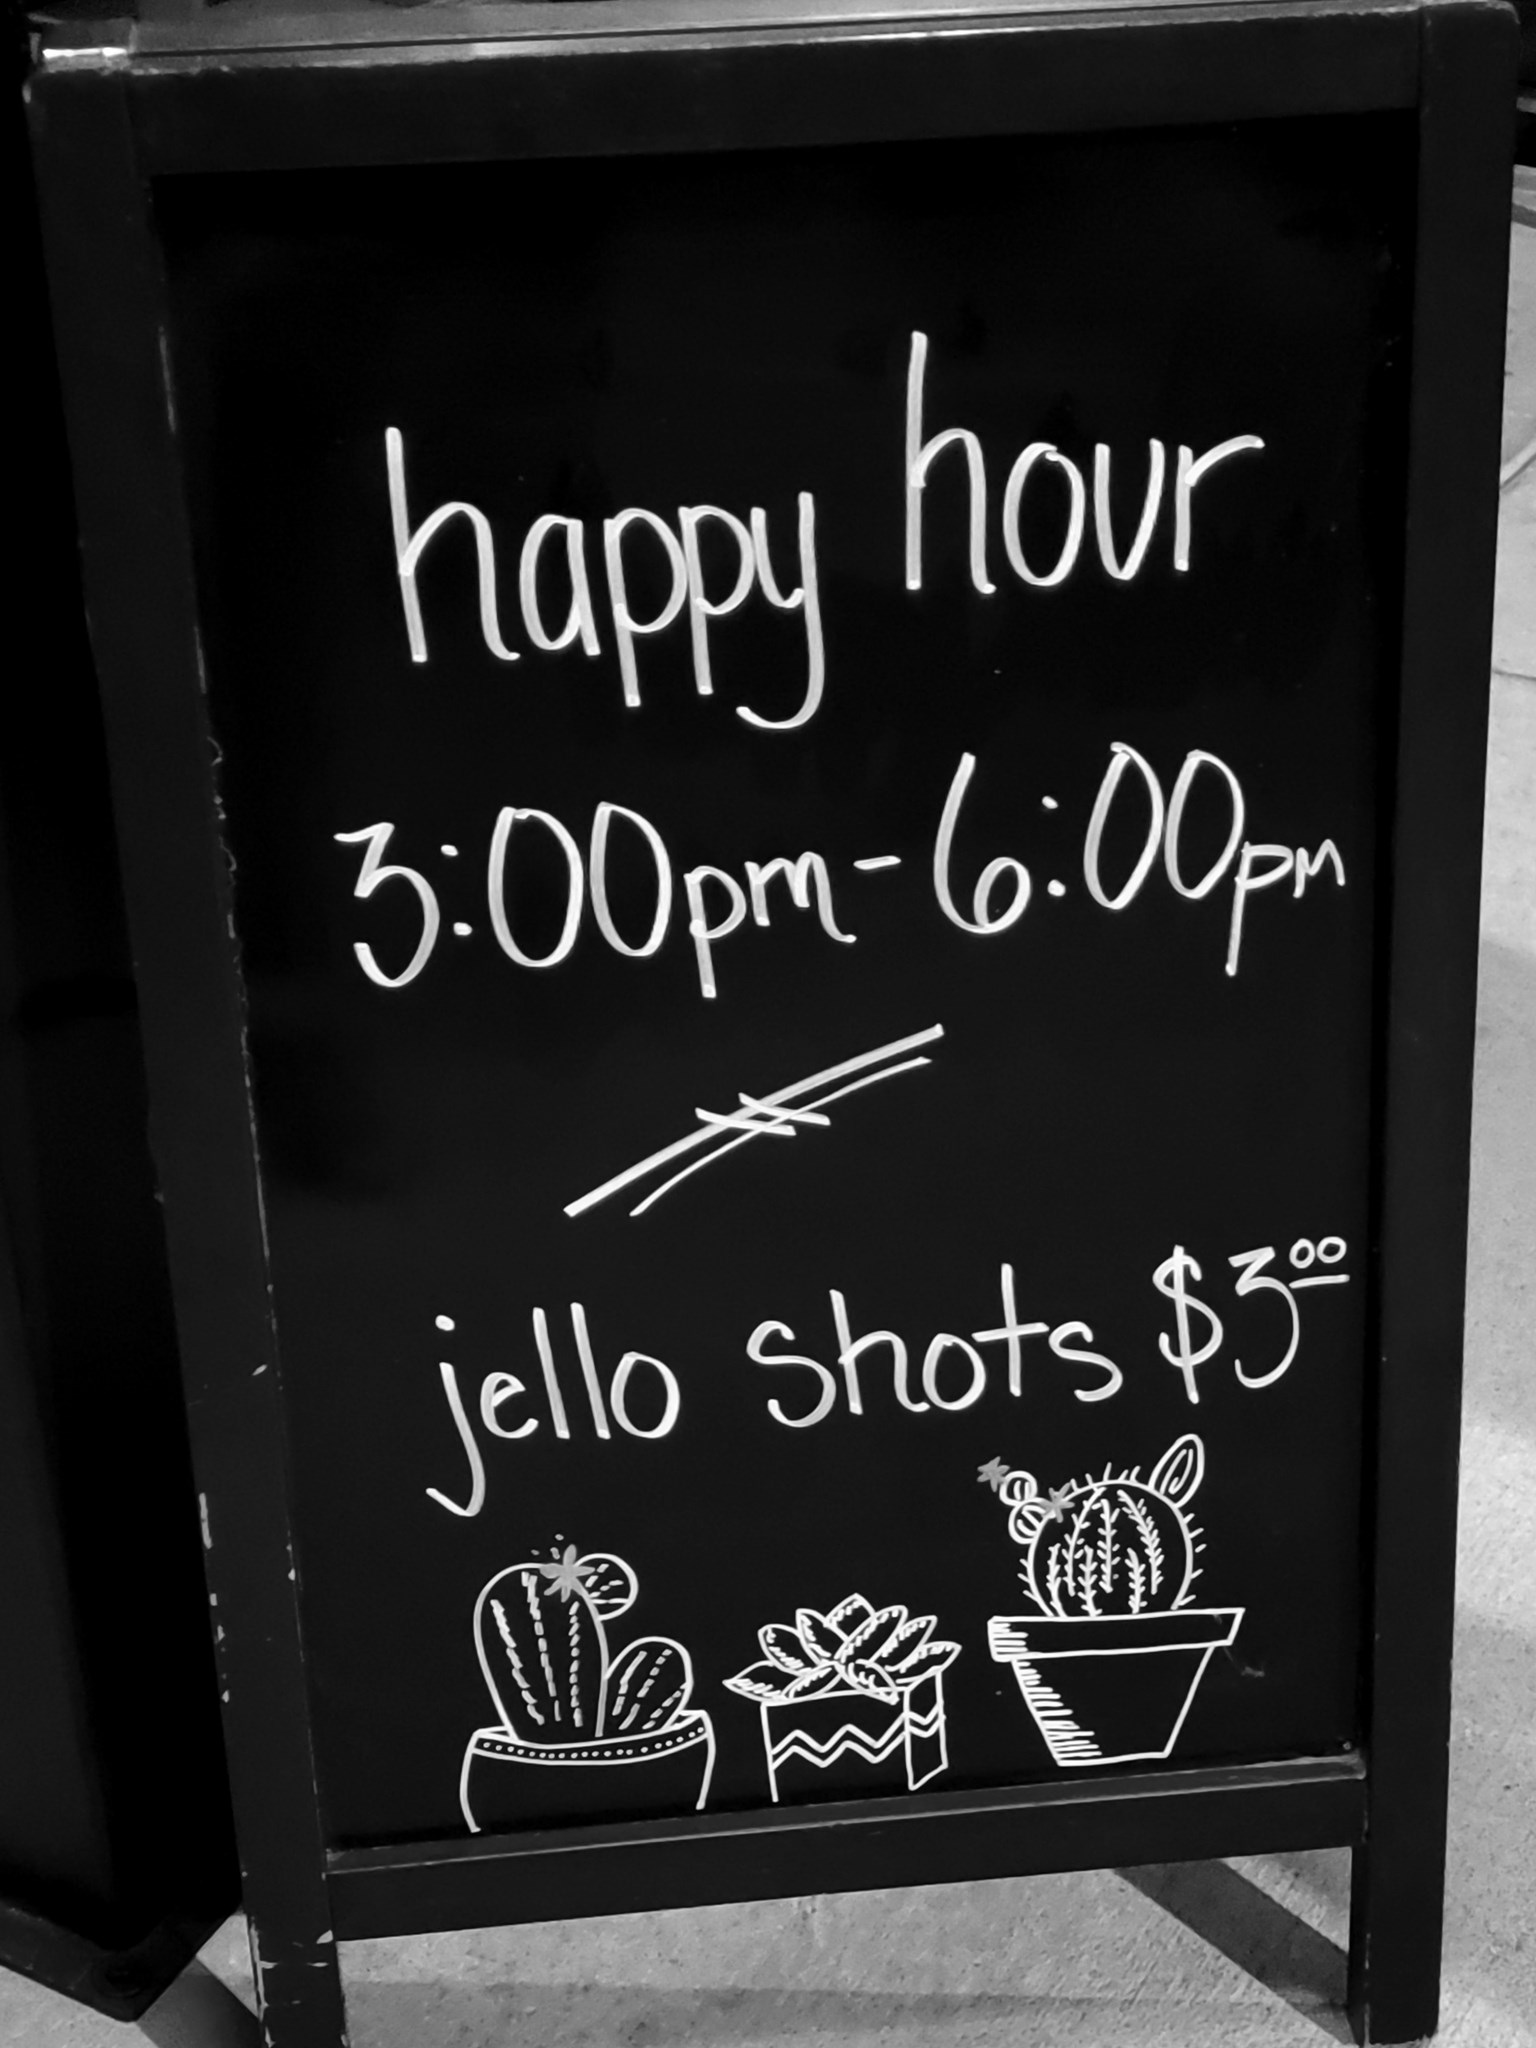 happy hour
3:00pm - 6:00pm
jello shots $3.00